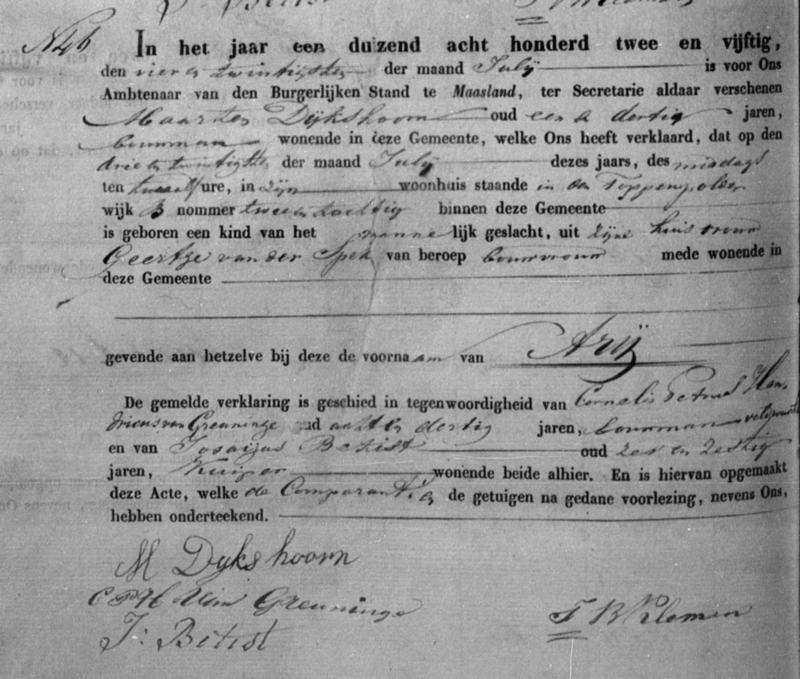 N 46
In het jaar een duizend acht honderd twee en vijftig,
den vier en twintigsten der maand July is voor Ons
Ambtenaar van den Burgerlijken Stand te Maasland, ter Secretarie aldaar verschenen
Maarten Dijkshoorn oud een en dertig jaren,
bouwman wonende in deze Gemeente, welke Ons heeft verklaard, dat op den
drie en twintigsten der maand July dezes jaars, des middags
ten twaalf ure, in zijn woonhuis staande in den
wijk B nommer twee en tachtig binnen deze Gemeente
is geboren een kind van het mannelijk geslacht, uit zijne huisvrouw
Geertge van der Spek van beroep bouwvrouw mede wonende in
deze Gemeente
gevende aan hetzelve bij deze de voornaam van Arij
De gemelde verklaring is geschied in tegenwoordigheid van Cornelis Petrus Hen
dricus van Greuninge oud acht en dertig jaren, bouwman
en van Betist oud zes en zestig
jaren, kuiper wonende beide alhier. En is hiervan opgemaakt
deze Acte, welke de Comparant en de getuigen na gedane voorlezing, nevens Ons,
hebben onderteekend.
M Dijkshoorn
C P H Van Greuninge
J: Betist